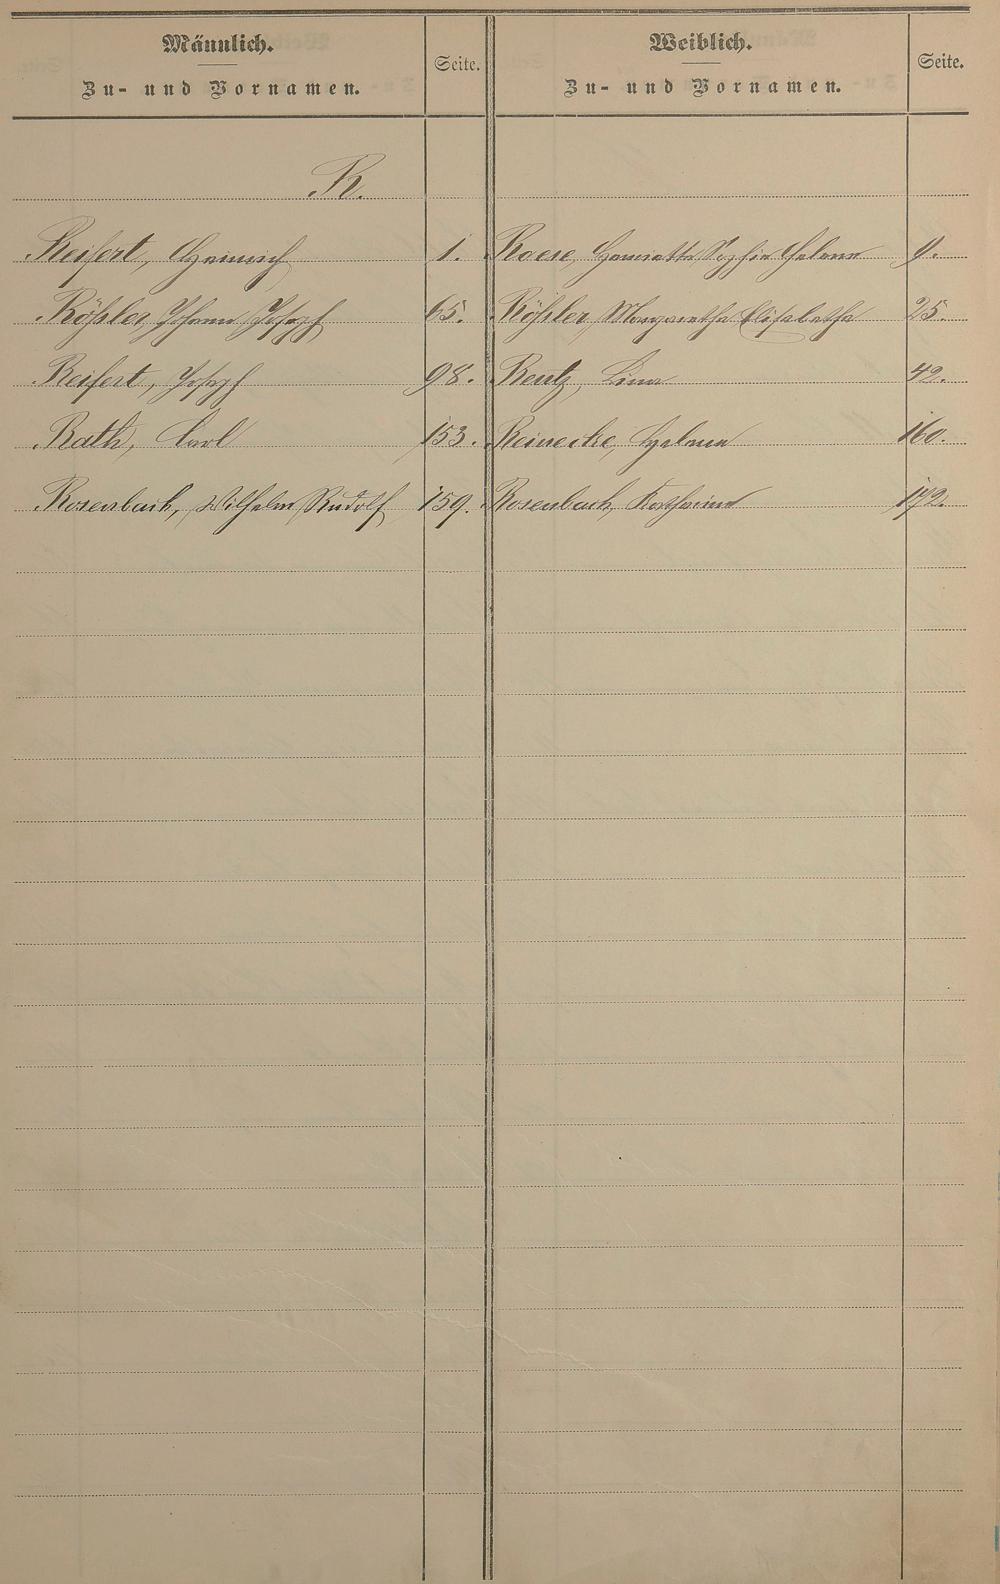 Männlich.
Zu- und Vornamen.
Seite.
Weiblich.
Zu- und Vornamen.
Seite.
R.
Reifert, Heinrich 1. Roese, Henriette Sophie Helene 9.
Rößler, Johann Joseph 65. Rößler, Margaretha Elisabetha 25.
Reifert, Joseph 98. Rentz, Lina 42.
Rath, Carl 153. Reinecke, Helene 160.
Rosenbach, Wilhelm Rudolf 159. Rosenbach, Katharina 172.